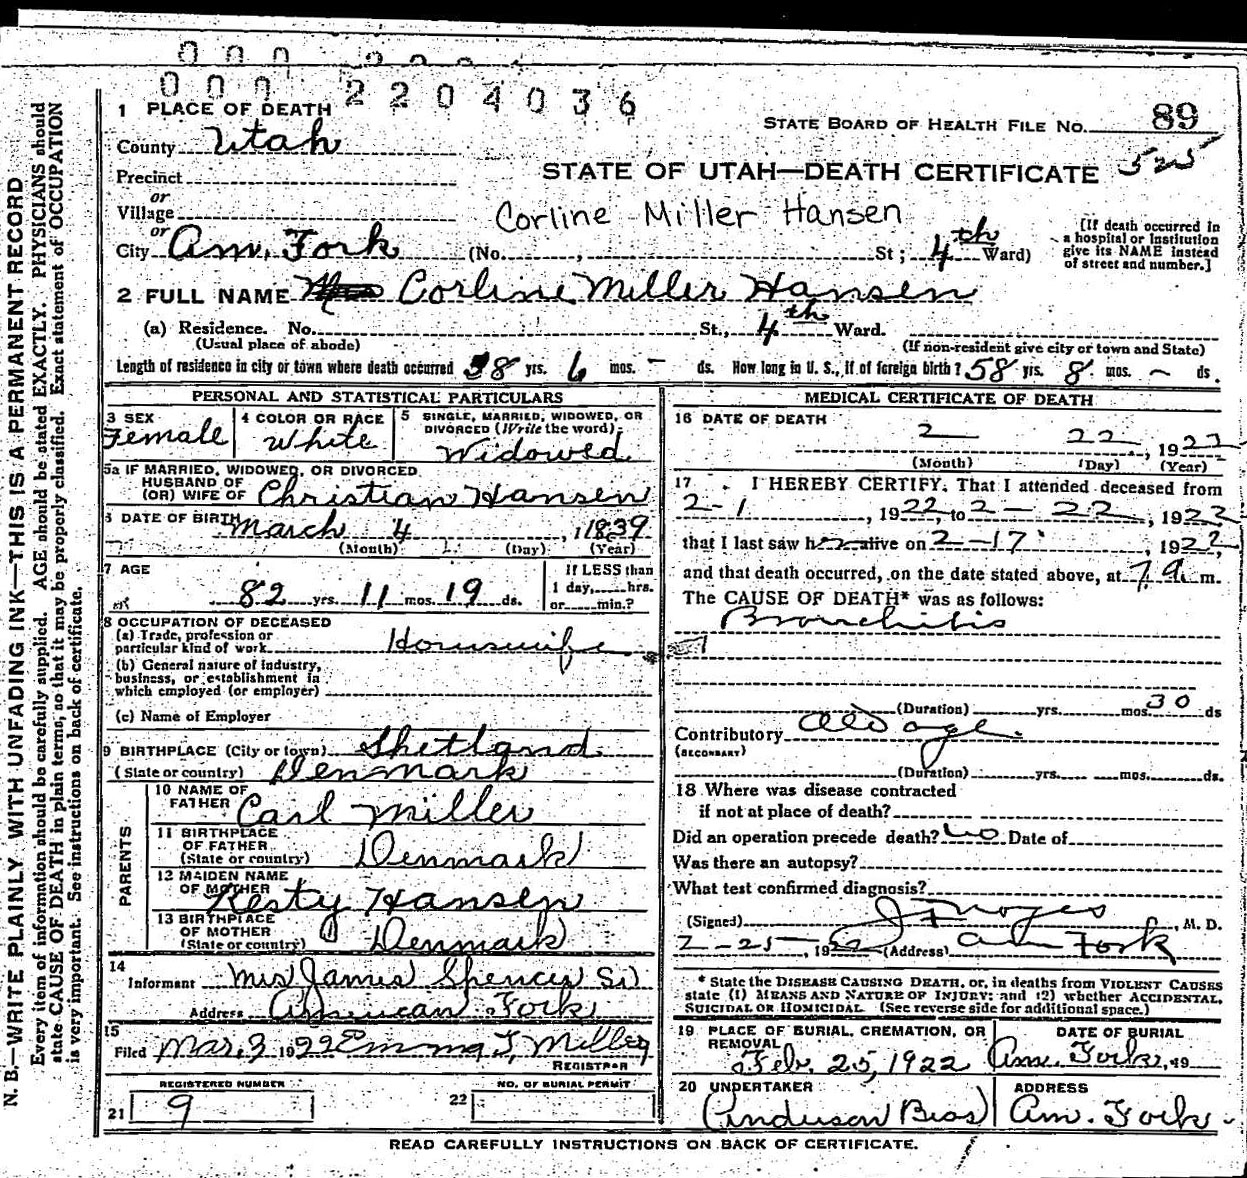 000 2204036
1 PLACE OF DEATH
STATE BOARD OF HEALTH FILE NO. 89
County Utah
525
STATE OF UTAH—DEATH CERTIFICATE
Precinct
or
Village
Corline Miller Hansen
or
City Am. Fork (No. , St; 4th Ward)
[If death occurred in
a hospital or institution
give its NAME instead
of street and number.]
2 FULL NAME Corline Miller Hansen
(a) Residence. No. St., 4th Ward.
(Usual place of abode) (If non-resident give city or town and State)
Length of residence in city or town where death occurred 58 yrs. 6 mos. - ds. How long in U. S., if of foreign birth? 58 yrs. 8 mos. - ds.
PERSONAL AND STATISTICAL PARTICULARS
3 SEX
Female
4 COLOR OR RACE
White
5 SINGLE, MARRIED, WIDOWED, OR
DIVORCED (Write the word)
Widowed
5a IF MARRIED, WIDOWED, OR DIVORCED
HUSBAND OF
(OR) WIFE OF Christian Hansen
6 DATE OF BIRTH March 4, 1839
(Month) (Day) (Year)
7 AGE
82 yrs. 11 mos. 19 ds.
If LESS than
1 day, hrs.
or min.?
8 OCCUPATION OF DECEASED
(a) Trade, profession or
particular kind of work Housewife
(b) General nature of industry,
business, or establishment in
which employed (or employer)
(c) Name of Employer
9 BIRTHPLACE (City or town) Shetland
(State or country) Denmark
PARENTS
10 NAME OF
FATHER Carl Miller
11 BIRTHPLACE
OF FATHER
(State or country) Denmark
12 MAIDEN NAME
OF MOTHER Kesty Hansen
13 BIRTHPLACE
OF MOTHER
(State or country) Denmark
14
Informant Mrs James Spencer Sr
Address American Fork
15
Filed Mar. 3 1922 Emma F. Miller
REGISTRAR
REGISTERED NUMBER
21 9
NO. OF BURIAL PERMIT
22
MEDICAL CERTIFICATE OF DEATH
16 DATE OF DEATH
2 22, 1922
(Month) (Day) (Year)
17 I HEREBY CERTIFY, That I attended deceased from
2-1, 1922, to 2-22, 1922,
that I last saw her alive on 2-17, 1922,
and that death occurred, on the date stated above, at 7 a. m.
The CAUSE OF DEATH* was as follows:
Bronchitis
(Duration) yrs. mos. 30 ds
Contributory Old age
(SECONDARY)
(Duration) yrs. mos. ds.
18 Where was disease contracted
if not at place of death?
Did an operation precede death? No Date of
Was there an autopsy?
What test confirmed diagnosis?
(Signed) J F Noyes, M. D.
2-25-, 1922 (Address) Am Fork
* State the DISEASE CAUSING DEATH, or, in deaths from VIOLENT CAUSES
state (1) MEANS AND NATURE OF INJURY; and (2) whether ACCIDENTAL,
SUICIDAL OR HOMICIDAL. (See reverse side for additional space.)
19 PLACE OF BURIAL, CREMATION, OR
REMOVAL
Feb. 25, 1922
DATE OF BURIAL
Am. Fork, 19
20 UNDERTAKER
Anderson Bros
ADDRESS
Am. Fork
READ CAREFULLY INSTRUCTIONS ON BACK OF CERTIFICATE.
N. B.—WRITE PLAINLY WITH UNFADING INK—THIS IS A PERMANENT RECORD
Every item of information should be carefully supplied. AGE should be stated EXACTLY. PHYSICIANS should
state CAUSE OF DEATH in plain terms, so that it may be properly classified. Exact statement of OCCUPATION
is very important. See instructions on back of certificate.